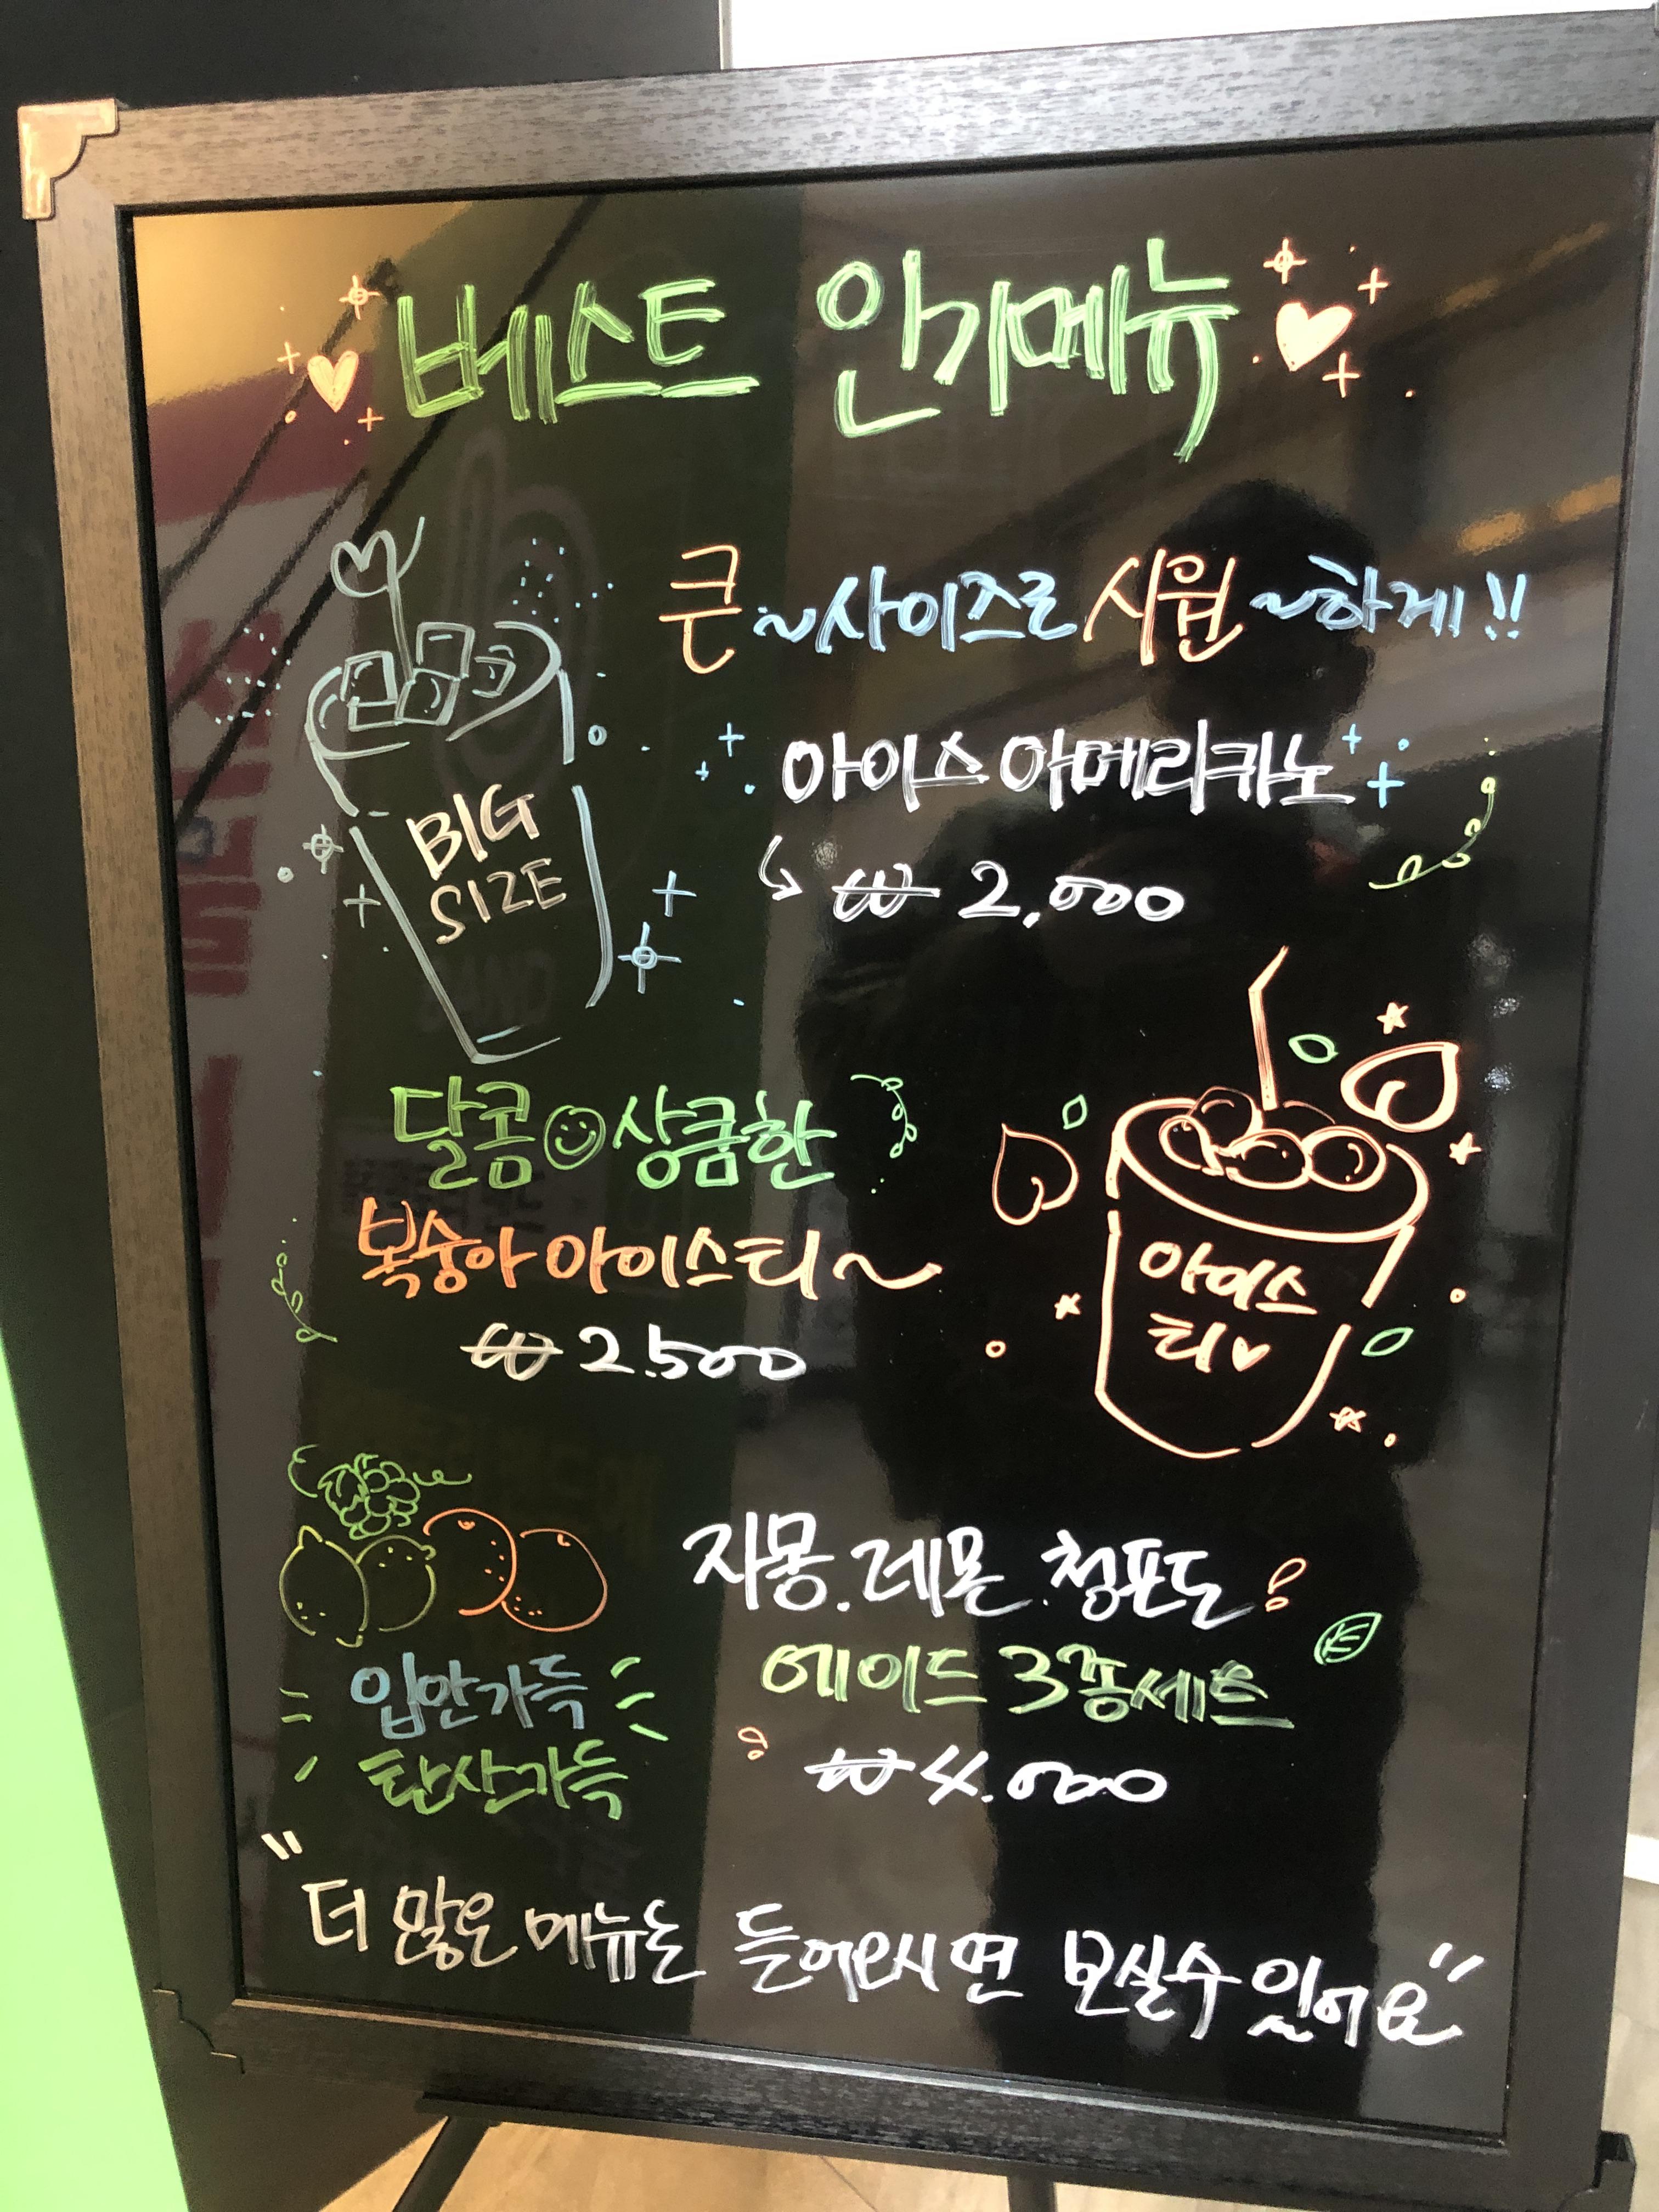 베스트 인기메뉴
큰~사이즈로 시원~하게!!
아이스 아메리카노
₩ 2,000
BIG
SIZE
달콤 상큼한
복숭아 아이스티~
₩ 2.500
아이스
티
자몽.레몬.청포도
에이드 3종세트
₩ 4.000
입안가득
탄산가득
"더 많은 메뉴는 들어오시면 보실수 있어요"